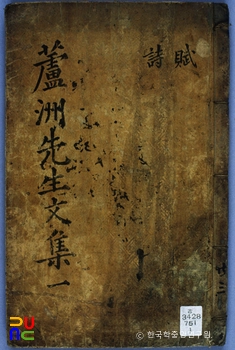 蘆洲先生文集一
賦
詩
3428
751
1
© 한국학중앙연구원